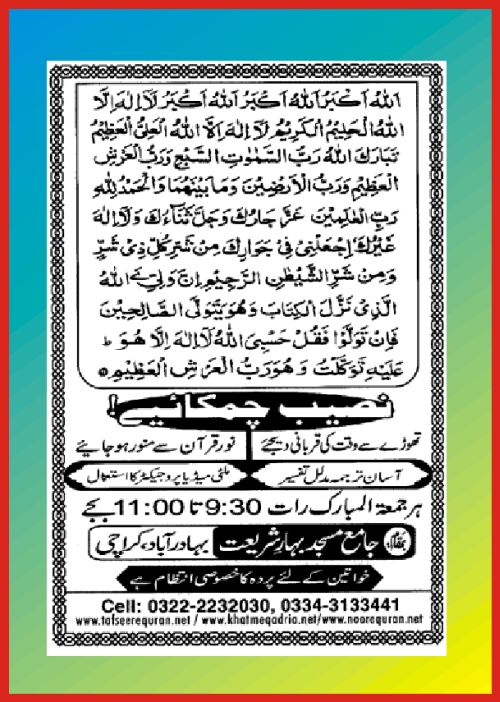 اَللّٰهُ اَكْبَرُ اَللّٰهُ اَكْبَرُ اَللّٰهُ اَكْبَرُ لَآ اِلٰهَ اِلَّا
اللّٰهُ الْحَلِيْمُ الْكَرِيْمُ لَآ اِلٰهَ اِلَّا اللّٰهُ الْعَلِيُّ الْعَظِيْمُ
تَبَارَكَ اللّٰهُ رَبُّ السَّمٰوٰتِ السَّبْعِ وَرَبُّ الْعَرْشِ
الْعَظِيْمِ وَرَبُّ الْاَرْضِيْنَ وَمَا بَيْنَهُمَا وَالْحَمْدُ لِلّٰهِ
رَبِّ الْعٰلَمِيْنَ عَزَّ جَارُكَ وَجَلَّ ثَنَاۤءُكَ وَلَآ اِلٰهَ
غَيْرُكَ اِجْعَلْنِيْ فِيْ جَوَارِكَ مِنْ شَرِّ كُلِّ ذِيْ شَرٍّ
وَمِنْ شَرِّ الشَّيْطٰنِ الرَّجِيْمِ اِنَّ وَلِيِّ ےَ اللّٰهُ
الَّذِيْ نَزَّلَ الْكِتَابَ وَهُوَ يَتَوَلَّى الصَّالِحِيْنَ
فَاِنْ تَوَلَّوْا فَقُلْ حَسْبِيَ اللّٰهُ لَآ اِلٰهَ اِلَّا هُوَ ط
عَلَيْهِ تَوَكَّلْتُ وَهُوَ رَبُّ الْعَرْشِ الْعَظِيْمِ
نصیب چمکائیے!
تھوڑے سے وقت کی قربانی دیجئے نور قرآن سے منور ہو جائیے
آسان ترجمہ مدلل تفسیر ملٹی میڈیا پروجیکٹر کا استعمال
ہر جمعۃ المبارک رات 9:30 تا 11:00 بجے
بمقام جامع مسجد بہار شریعت بہادر آباد، کراچی
خواتین کے لئے پردہ کا خصوصی انتظام ہے
Cell: 0322-2232030, 0334-3133441
www.tafseerequran.net / www.khatmeqadria.net/www.noorequran.net